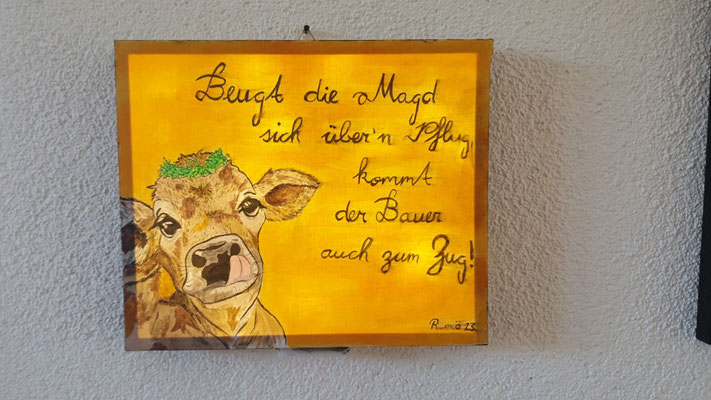 Beugt die Magd
sich über'n Pflug,
kommt
der Bauer
auch zum Zug!